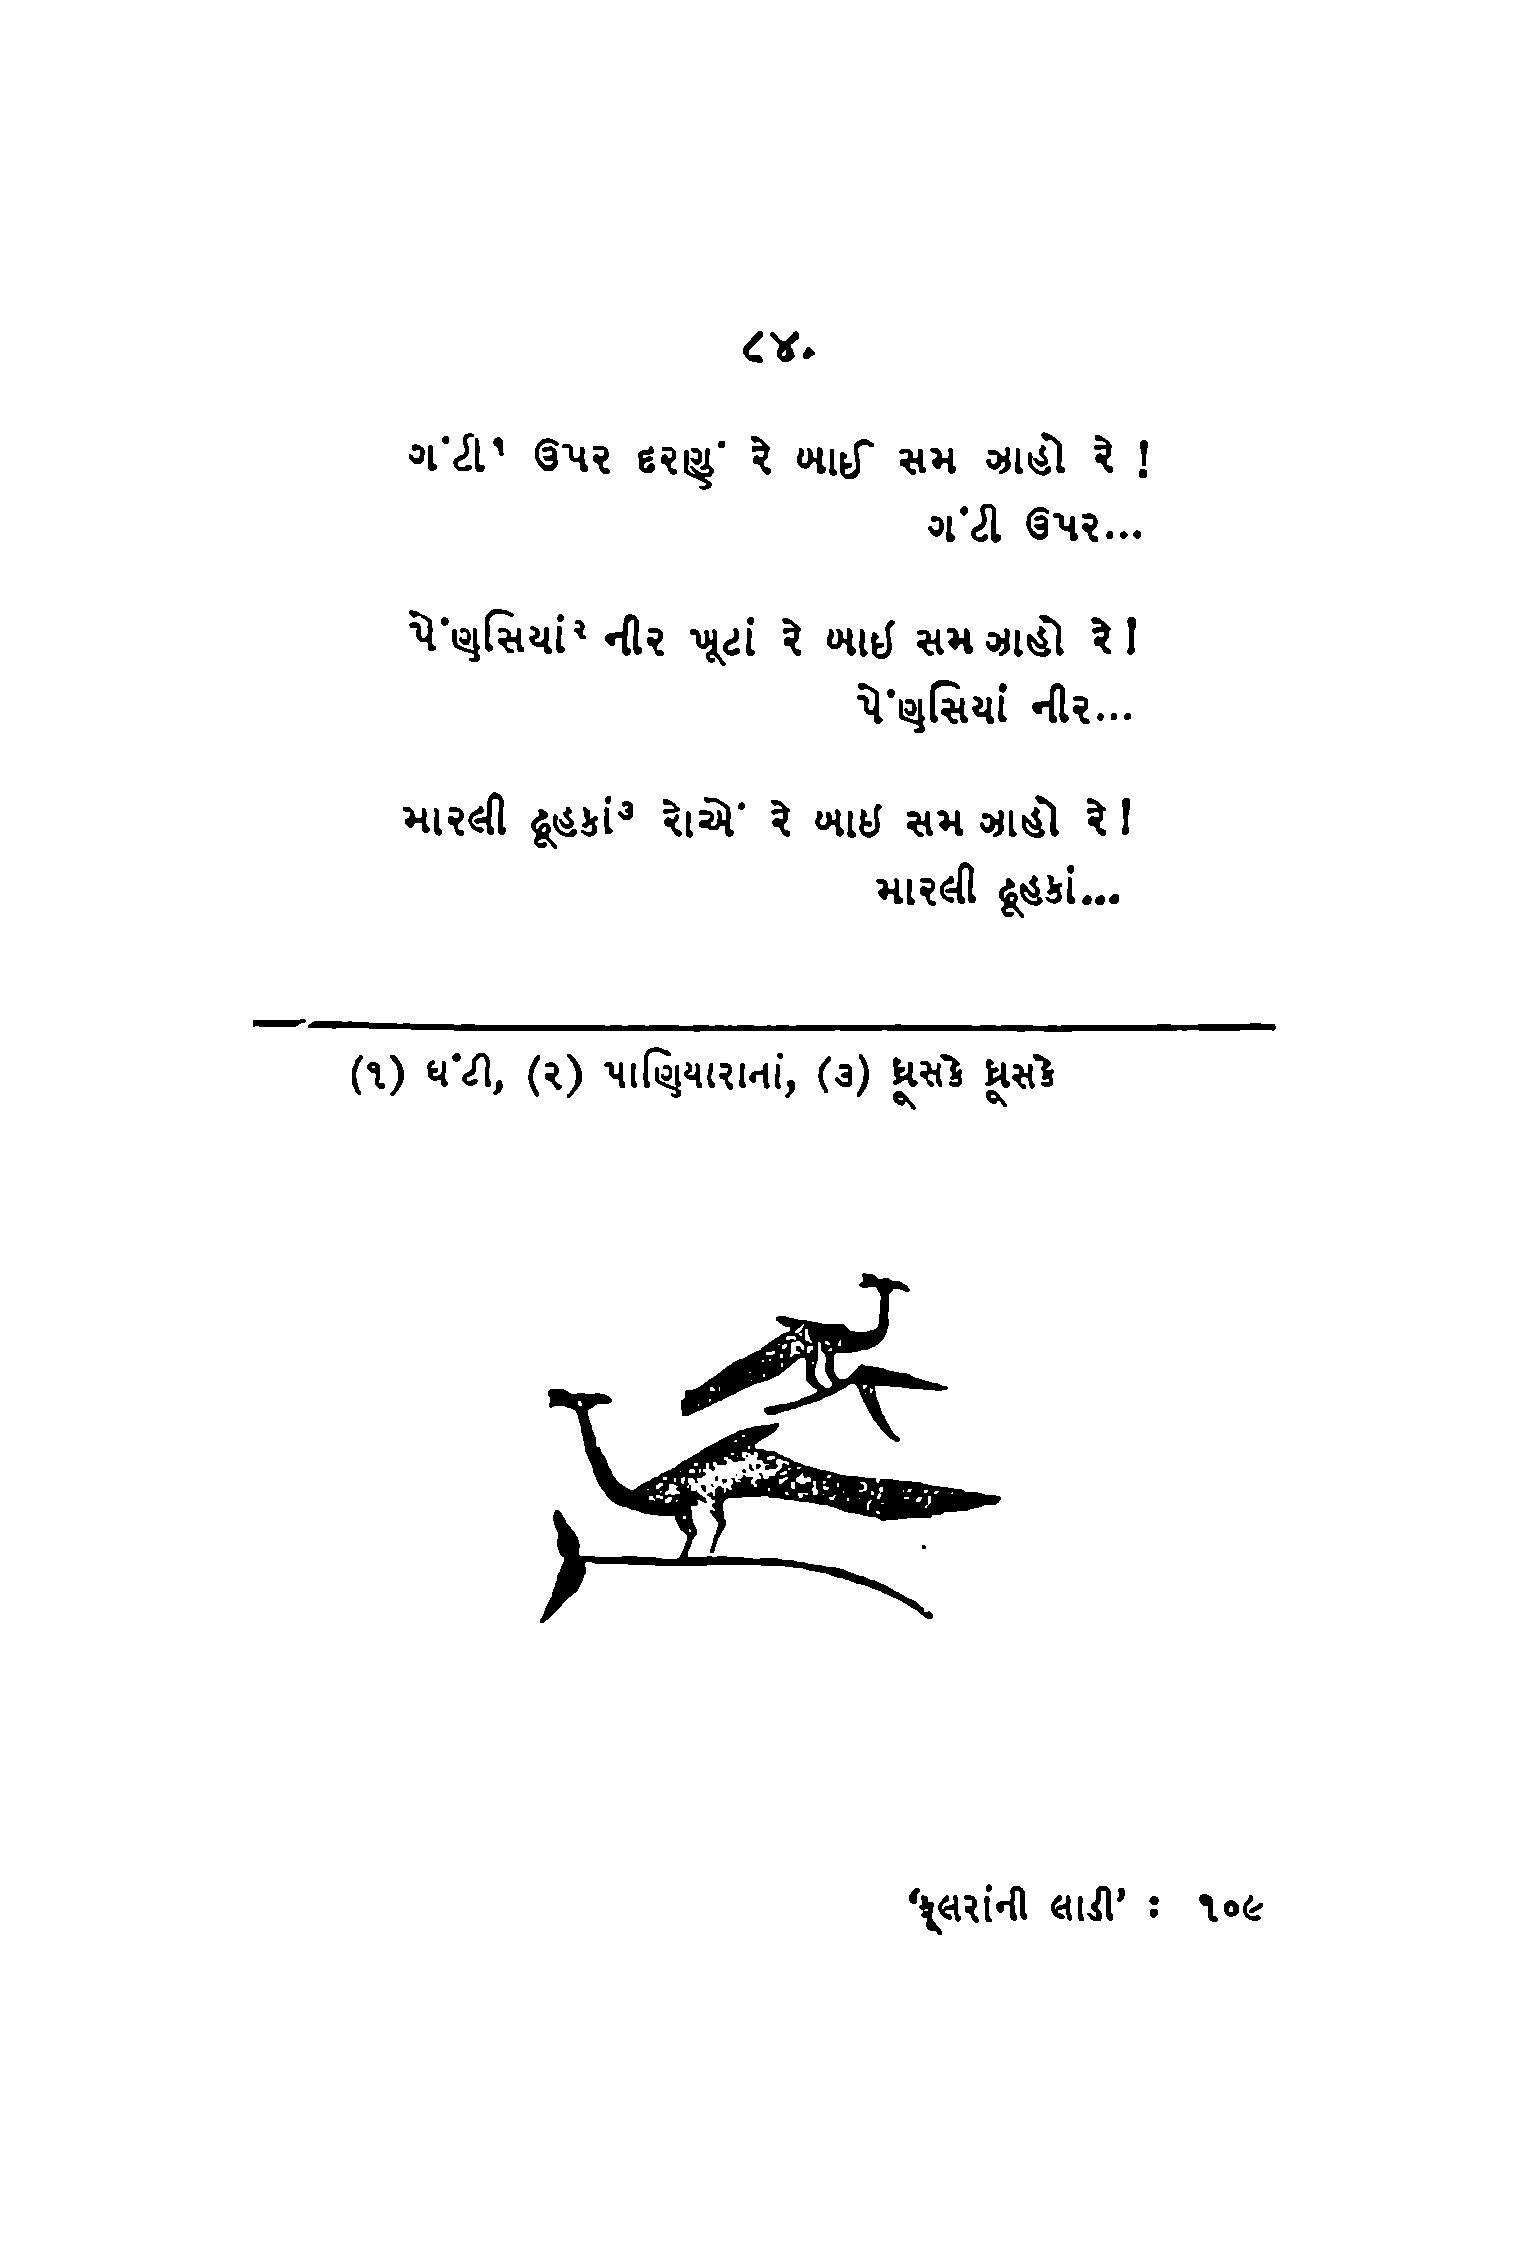 ૮૪.
ગંટી૧ ઉપર દરણું રે બાઈ સમ ઝાહો રે !
ગંટી ઉપર...
પેંણસિયાં૨ નીર ખૂટાં રે બાઇ સમ ઝાહો રે !
પેંણસિયાં નીર...
મારલી ઢૂહકાં૩ રોએં રે બાઇ સમ ઝાહો રે !
મારલી ઢૂહકાં...
(૧) ઘંટી, (૨) પાણિયારાનાં, (૩) ધ્રૂસકે ધ્રૂસકે
‘ફૂલરાંની લાડી’ : ૧૦૯